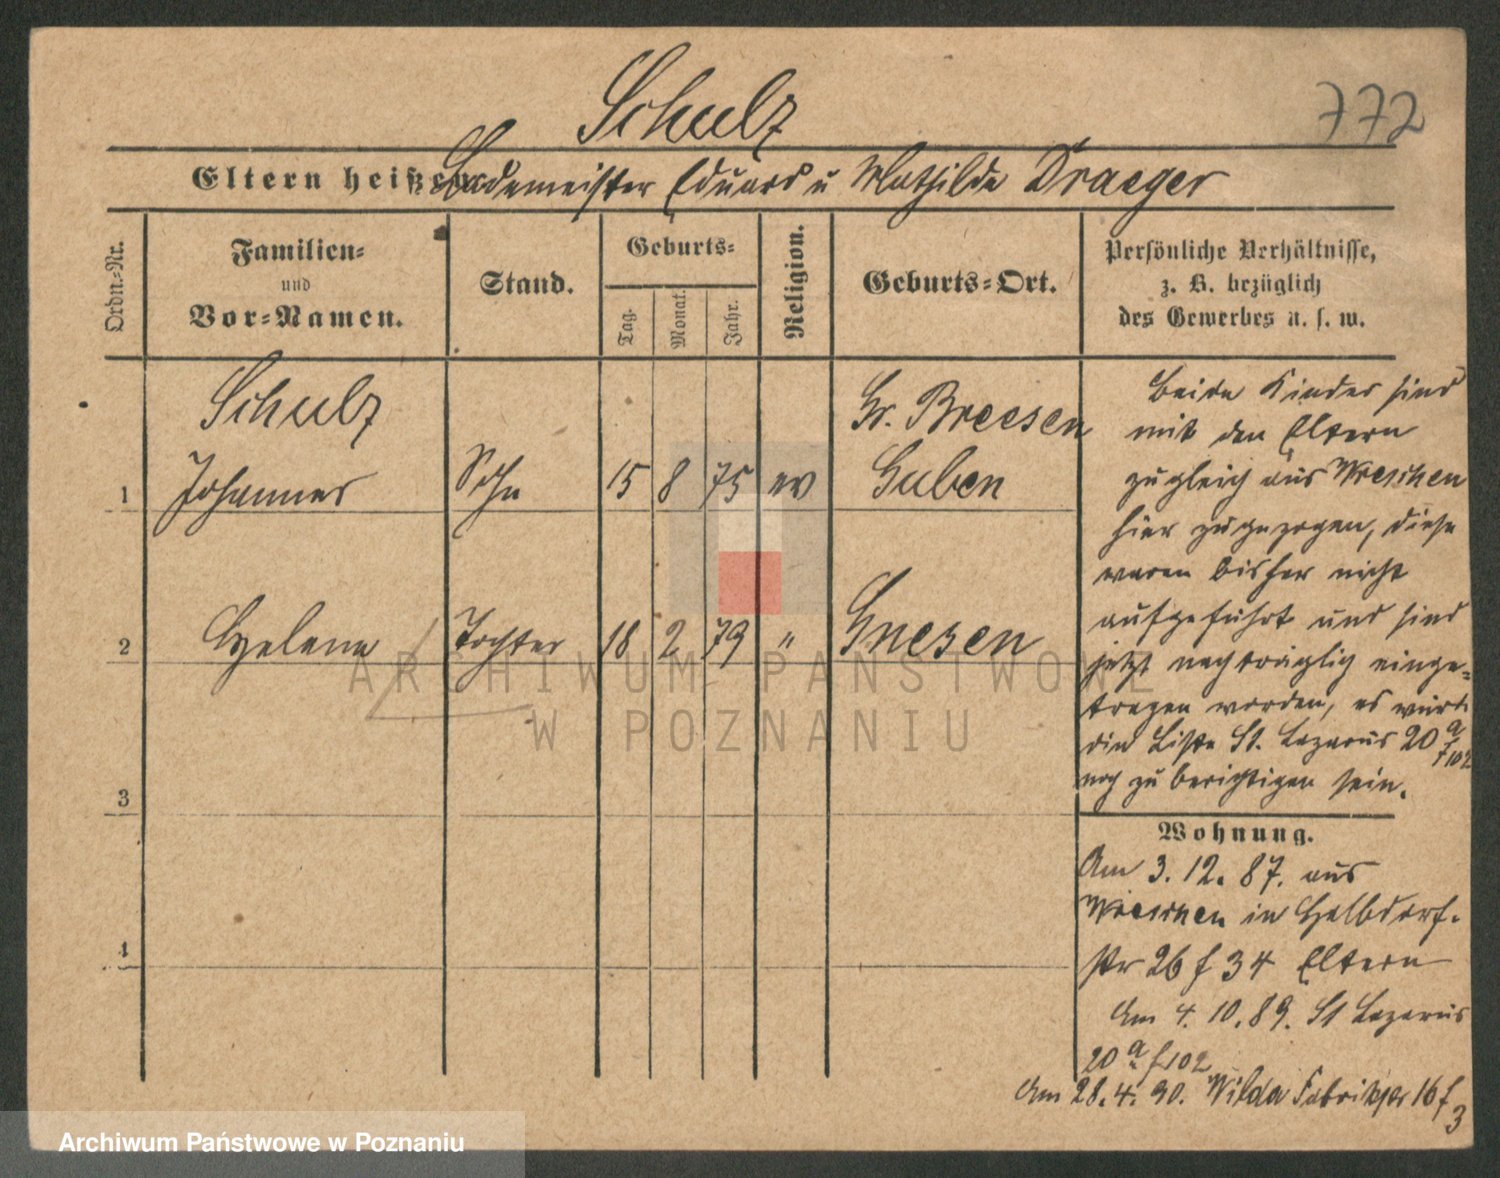 Schulz
772
Eltern heißen: Lademeister Eduard u Mathilde Draeger
Ordn.-Nr.
Familien-
und
Vor-Namen.
Stand.
Geburts-
Tag.
Monat.
Jahr.
Religion.
Geburts-Ort.
Persönliche Verhältnisse,
z. B. bezüglich
des Gewerbes u. s. w.
Schulz
1 Johannes Sohn 15 8 75 ev Gr. Breesen
Guben
2 Helene Tochter 18 2 79 " Gnesen
3
4
Beide Kinder sind
mit den Eltern
zugleich aus Wreschen
hier zugezogen, diese
waren bisher nicht
aufgeführt und sind
jetzt nachträglich einge-
tragen worden, es würde
die Liste St. Lazarus 20 a
f 102
noch zu berichtigen sein.
Wohnung.
Am 3. 12. 87. aus
Wreschen in Halbdorf-
str 26 f 34 Eltern
Am 4. 10. 89. St Lazarus
20 a f 102
Am 28. 4. 90. Wilda Fabrikstr 16 f
3
ARCHIWUM PAŃSTWOWE
W POZNANIU
Archiwum Państwowe w Poznaniu